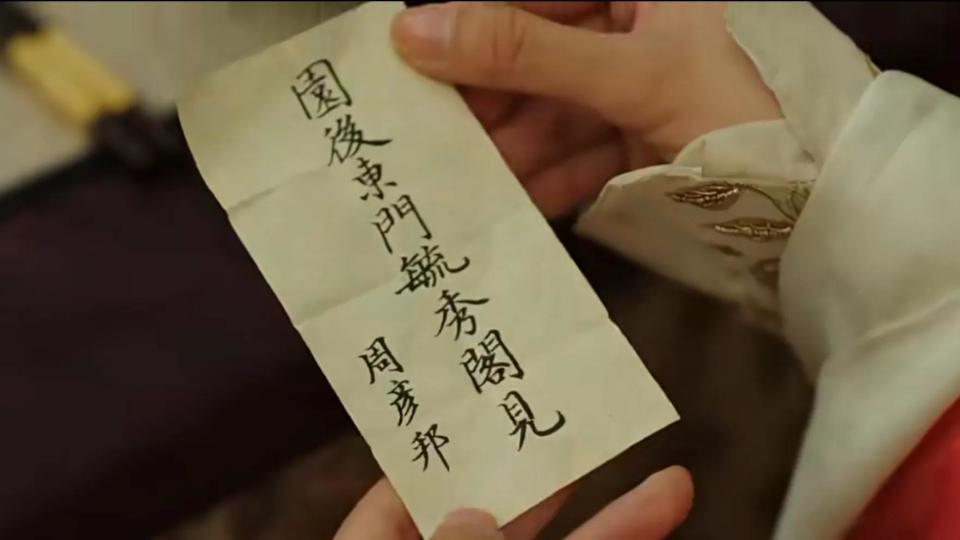 園後東門毓秀閣見
周彥邦